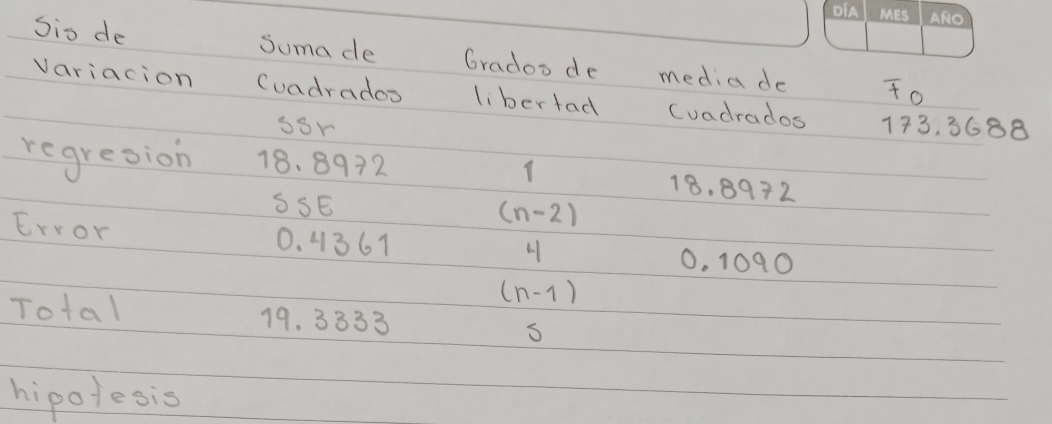 DÍA MES AÑO
Sio de Suma de Grados de media de Fo
Variacion Cuadrados libertad Cuadrados 173.3688
SSr
regresión 18.8972 1 18.8972
SSE (n-2)
Error 0.4361 4 0.1090
(n-1)
Total 19.3333 5
hipotesis